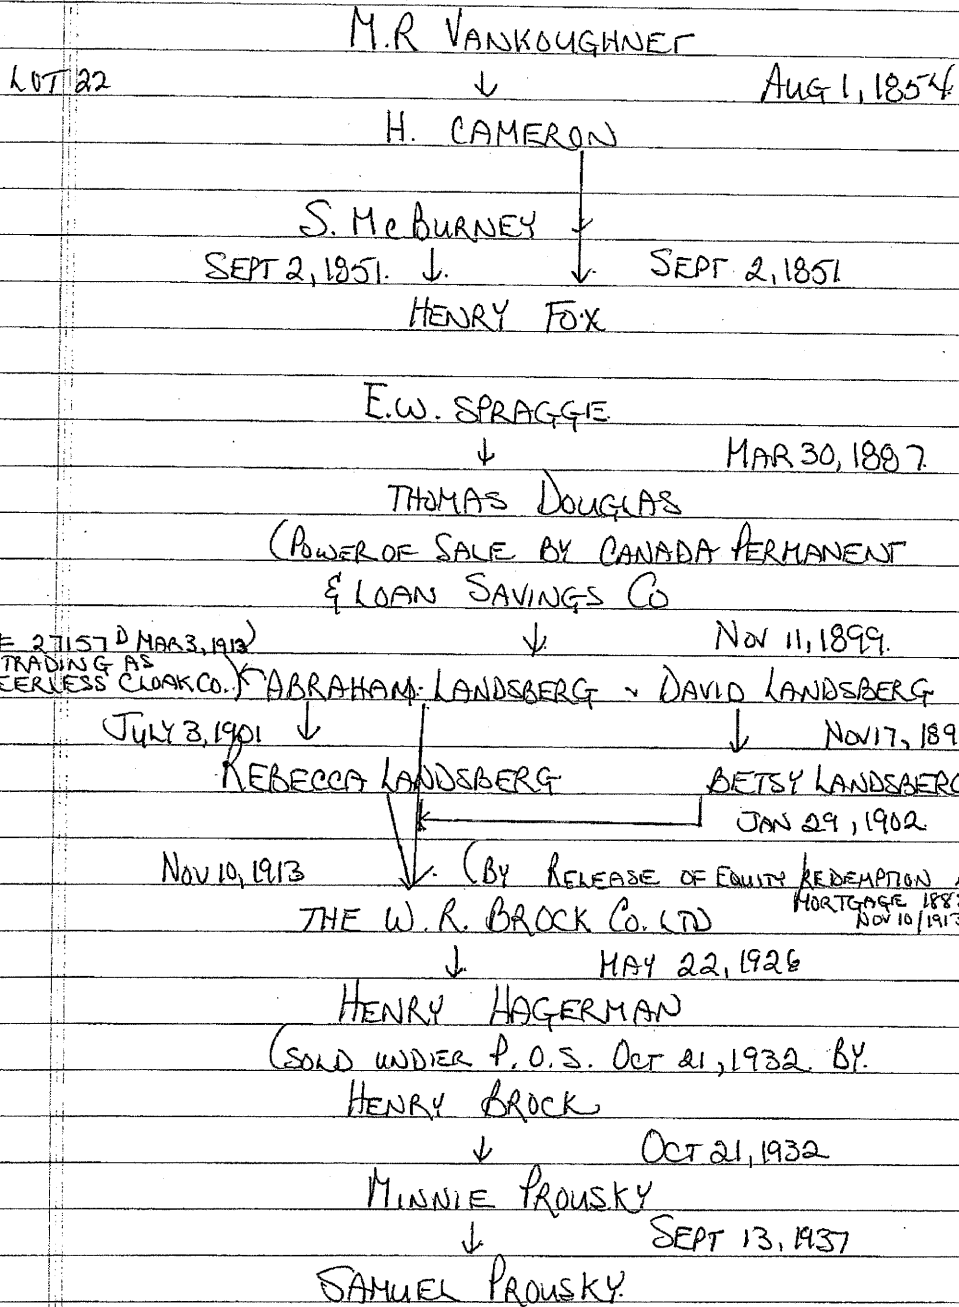 M.R VANKOUGHNET
LOT 22 ↓ AUG 1, 1854
H. CAMERON
S. McBURNEY
SEPT 2, 1851. ↓ ↓ SEPT 2, 1851
HENRY FOX
E.W. SPRAGGE
↓ MAR 30, 1887
THOMAS DOUGLAS
(POWER OF SALE BY CANADA PERMANENT
& LOAN SAVINGS CO
↓ NOV 11, 1899.
27157 D MAR 3, 1913)
TRADING AS
EERLESS CLOAK CO.) ABRAHAM LANDSBERG & DAVID LANDSBERG
JULY 3, 1901 ↓ ↓ NOV 17, 189
REBECCA LANDSBERG BETSY LANDSBERG
JAN 29, 1902
NOV 10, 1913 (BY RELEASE OF EQUITY REDEMPTION
MORTGAGE 188
NOV 10/1913
THE W. R. BROCK CO. LTD
↓ MAY 22, 1926
HENRY HAGERMAN
(SOLD UNDER P.O.S. OCT 21, 1932 BY.
HENRY BROCK
↓ OCT 21, 1932
MINNIE PROUSKY
↓ SEPT 13, 1937
SAMUEL PROUSKY.